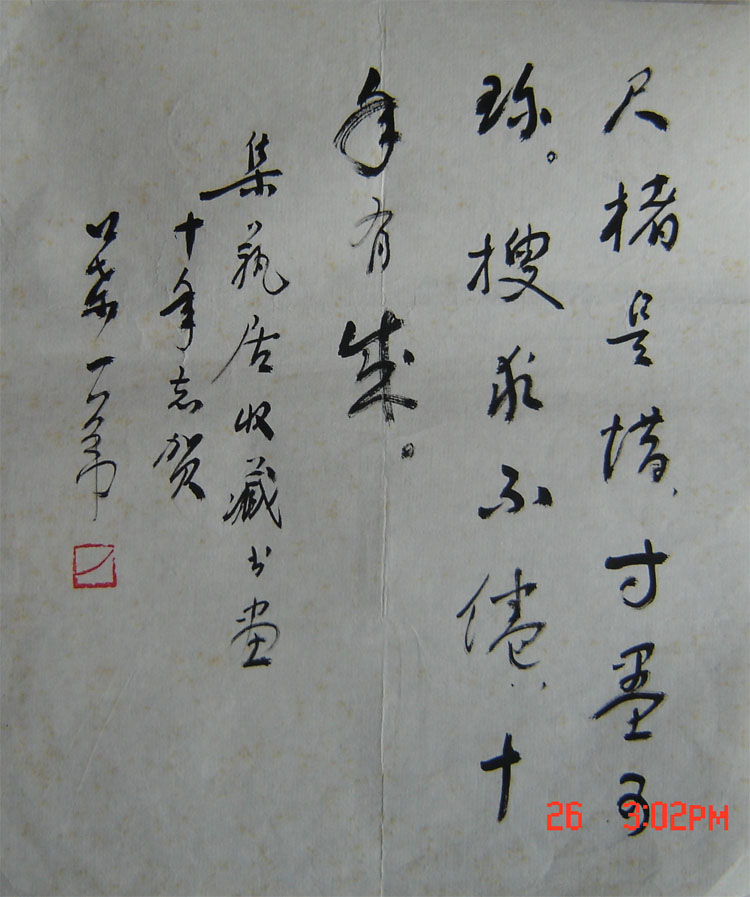 尺楮是惜、寸墨可
珍。搜求不倦、十
年有成。
集瓻居收藏书画
十年志贺
26 3:02PM